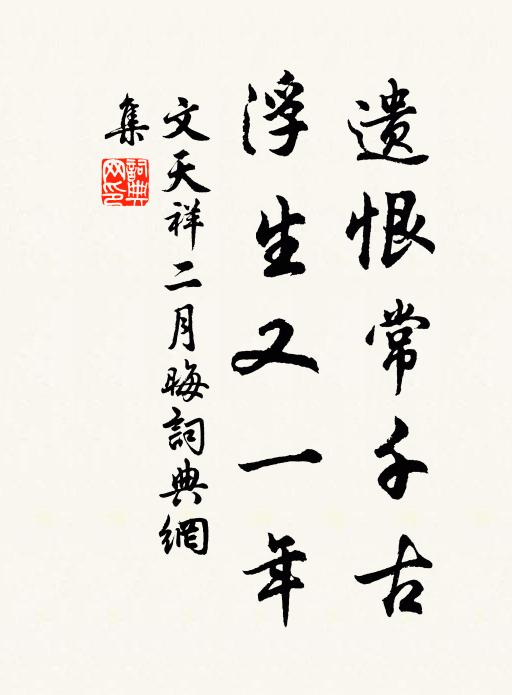 遺恨常千古
浮生又一年
文天祥二月晦詞典網
集
詞典網印